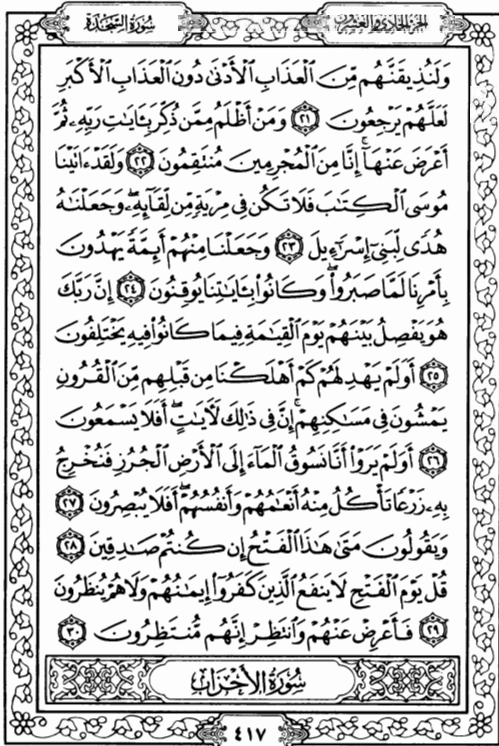 الجزء الحادي والعشرون
سُورَةُ السَّجْدَةِ
وَلَنُذِيقَنَّهُم مِّنَ ٱلْعَذَابِ ٱلْأَدْنَىٰ دُونَ ٱلْعَذَابِ ٱلْأَكْبَرِ
لَعَلَّهُمْ يَرْجِعُونَ ٢١ وَمَنْ أَظْلَمُ مِمَّن ذُكِّرَ بِـَٔايَٰتِ رَبِّهِۦ ثُمَّ
أَعْرَضَ عَنْهَآ إِنَّا مِنَ ٱلْمُجْرِمِينَ مُنتَقِمُونَ ٢٢ وَلَقَدْ ءَاتَيْنَا
مُوسَى ٱلْكِتَٰبَ فَلَا تَكُن فِى مِرْيَةٍ مِّن لِّقَآئِهِۦ وَجَعَلْنَٰهُ
هُدًى لِّبَنِىٓ إِسْرَٰٓءِيلَ ٢٣ وَجَعَلْنَا مِنْهُمْ أَئِمَّةً يَهْدُونَ
بِأَمْرِنَا لَمَّا صَبَرُوا۟ وَكَانُوا۟ بِـَٔايَٰتِنَا يُوقِنُونَ ٢٤ إِنَّ رَبَّكَ
هُوَ يَفْصِلُ بَيْنَهُمْ يَوْمَ ٱلْقِيَٰمَةِ فِيمَا كَانُوا۟ فِيهِ يَخْتَلِفُونَ
٢٥ أَوَلَمْ يَهْدِ لَهُمْ كَمْ أَهْلَكْنَا مِن قَبْلِهِم مِّنَ ٱلْقُرُونِ
يَمْشُونَ فِى مَسَٰكِنِهِمْ إِنَّ فِى ذَٰلِكَ لَءَايَٰتٍ أَفَلَا يَسْمَعُونَ
٢٦ أَوَلَمْ يَرَوْا۟ أَنَّا نَسُوقُ ٱلْمَآءَ إِلَى ٱلْأَرْضِ ٱلْجُرُزِ فَنُخْرِجُ
بِهِۦ زَرْعًا تَأْكُلُ مِنْهُ أَنْعَٰمُهُمْ وَأَنفُسُهُمْ أَفَلَا يُبْصِرُونَ ٢٧
وَيَقُولُونَ مَتَىٰ هَٰذَا ٱلْفَتْحُ إِن كُنتُمْ صَٰدِقِينَ ٢٨
قُلْ يَوْمَ ٱلْفَتْحِ لَا يَنفَعُ ٱلَّذِينَ كَفَرُوٓا۟ إِيمَٰنُهُمْ وَلَا هُمْ يُنظَرُونَ
٢٩ فَأَعْرِضْ عَنْهُمْ وَٱنتَظِرْ إِنَّهُم مُّنتَظِرُونَ ٣٠
سُورَةُ الأَحْزَابِ
٤١٧